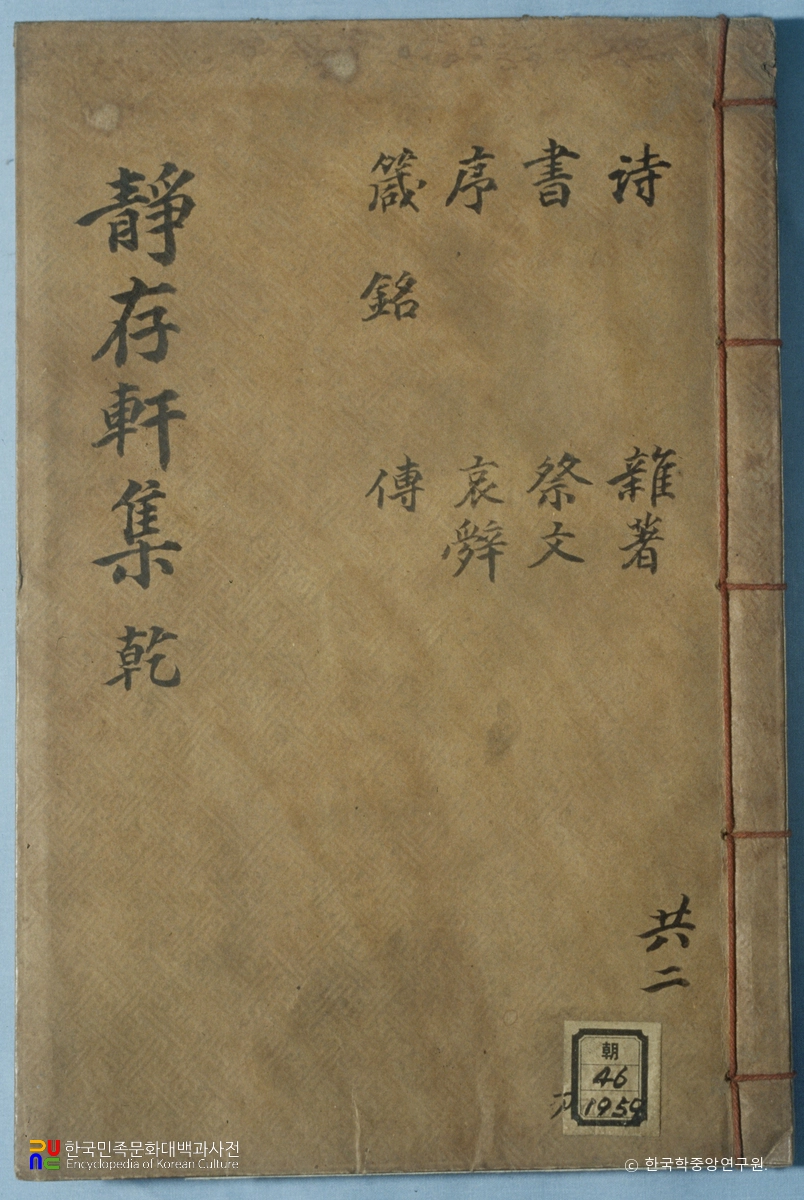 詩 雜著
書 祭文
序 哀辭
箴 銘 傳
靜存軒集 乾
共二
朝
46
1959
한국민족문화대백과사전
Encyclopedia of Korean Culture
© 한국학중앙연구원